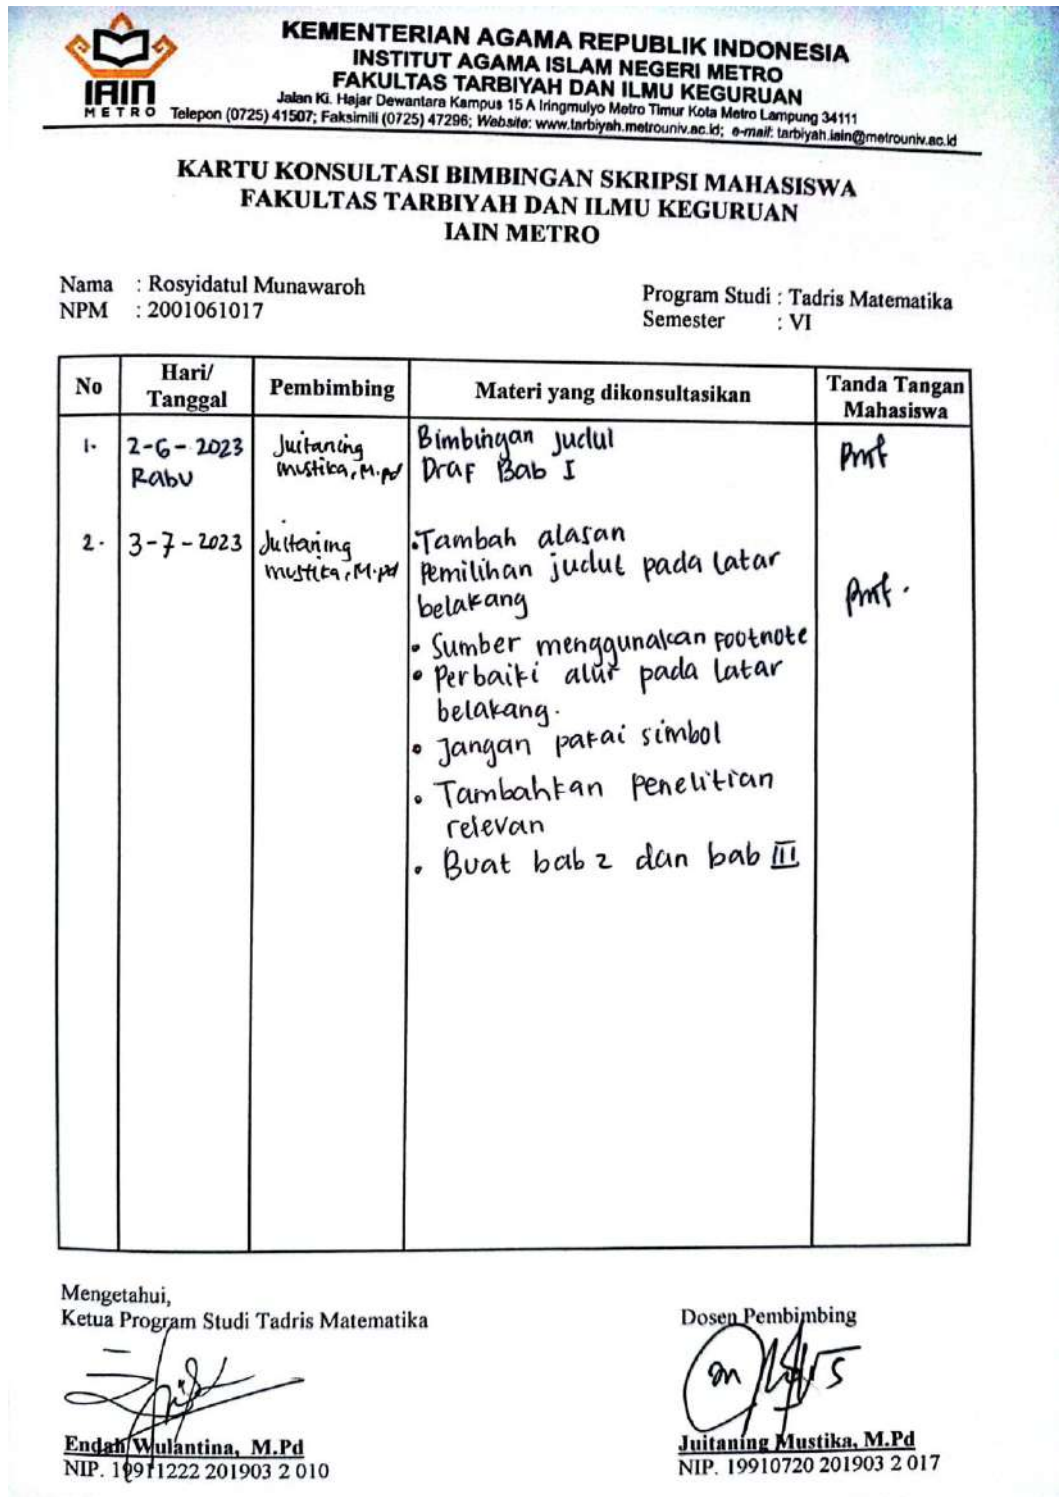 KEMENTERIAN AGAMA REPUBLIK INDONESIA
INSTITUT AGAMA ISLAM NEGERI METRO
FAKULTAS TARBIYAH DAN ILMU KEGURUAN
Jalan Ki. Hajar Dewantara Kampus 15 A Iringmulyo Metro Timur Kota Metro Lampung 34111
Telepon (0725) 41507; Faksimili (0725) 47296; Website: www.tarbiyah.metrouniv.ac.id; e-mail: tarbiyah.iain@metrouniv.ac.id
IAIN
METRO
KARTU KONSULTASI BIMBINGAN SKRIPSI MAHASISWA
FAKULTAS TARBIYAH DAN ILMU KEGURUAN
IAIN METRO
Nama : Rosyidatul Munawaroh
NPM : 2001061017
Program Studi : Tadris Matematika
Semester : VI
No
Hari/
Tanggal
Pembimbing
Materi yang dikonsultasikan
Tanda Tangan
Mahasiswa
1.
2-6-2023
Rabu
Juitaning
Mustika, M.pd
Bimbingan judul
Draf Bab I
2.
3-7-2023
Juitaning
mustika, M.pd
• Tambah alasan
Pemilihan judul pada latar
belakang
• Sumber menggunakan Footnote
• Perbaiki alur pada latar
belakang.
• Jangan pakai simbol
• Tambahkan Penelitian
relevan
• Buat bab 2 dan bab III
Mengetahui,
Ketua Program Studi Tadris Matematika
Endah Wulantina, M.Pd
NIP. 19911222 201903 2 010
Dosen Pembimbing
Juitaning Mustika, M.Pd
NIP. 19910720 201903 2 017